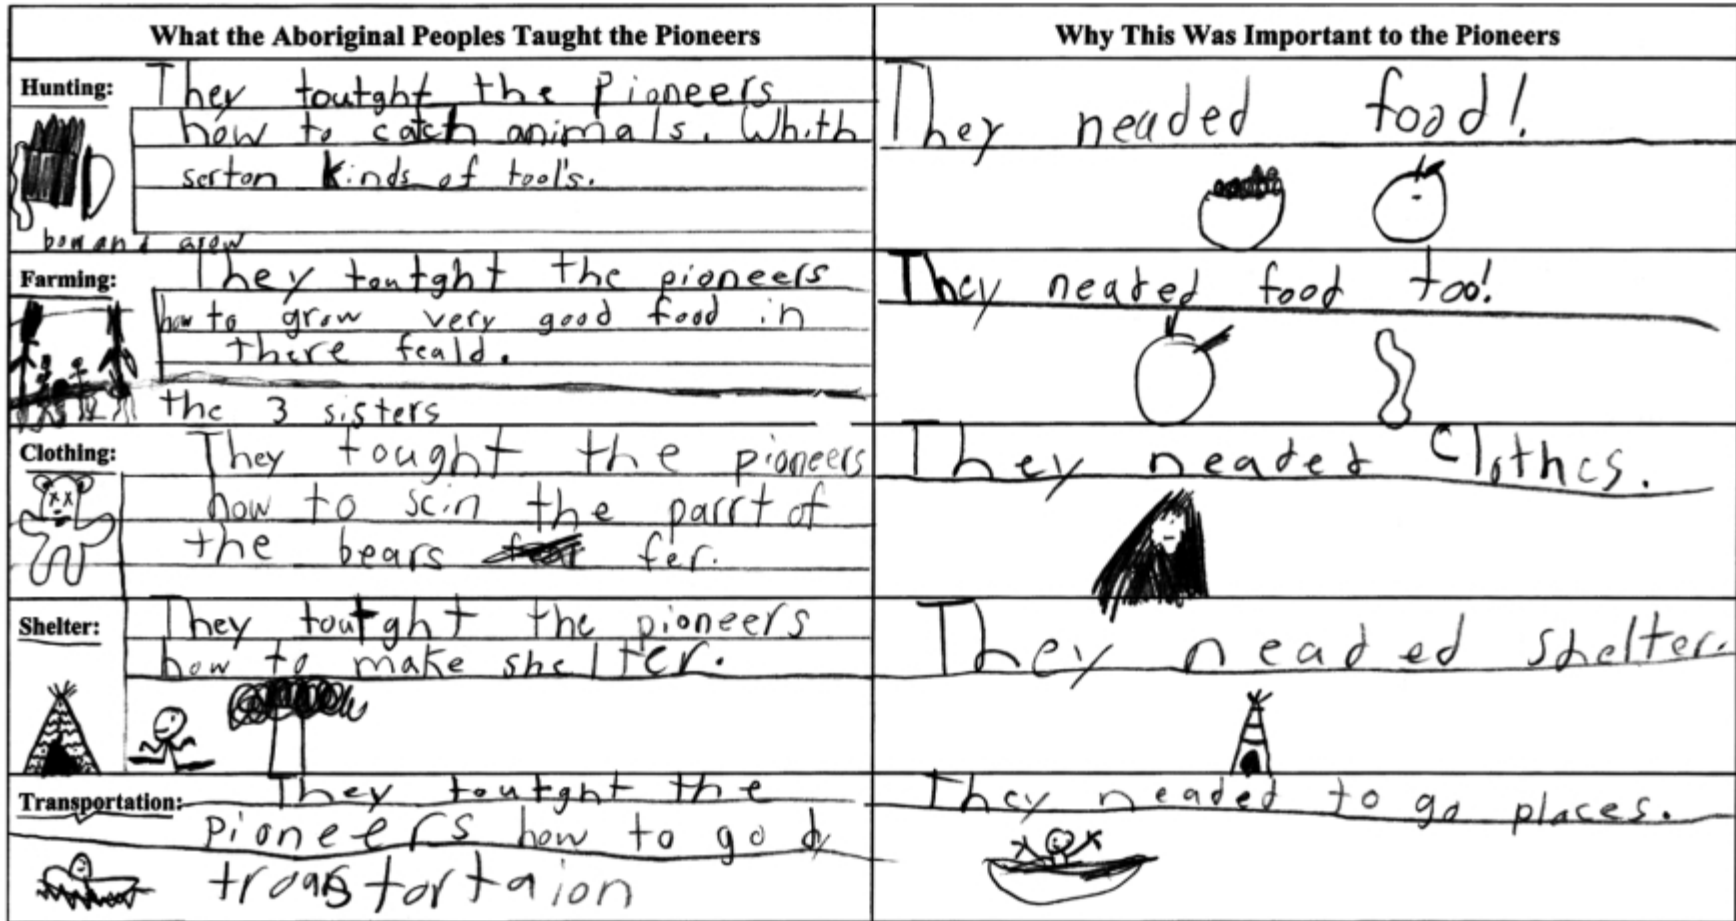 What the Aboriginal Peoples Taught the Pioneers
Why This Was Important to the Pioneers
Hunting:
They toutght the Pioneers
how to catch animals. Whith
serton kinds of tool's.
bow and arow
They neaded food!
Farming:
They toutght the pioneers
how to grow very good food in
there feald.
the 3 sisters
They neaded food too!
Clothing:
They tought the pioneers
how to scin the parrt of
the bears fer.
They neaded Clothes.
Shelter:
They toutght the pioneers
how to make shelter.
They neaded shelter.
Transportation:
They toutght the
pioneers how to go by
transtortaion
They neaded to go places.